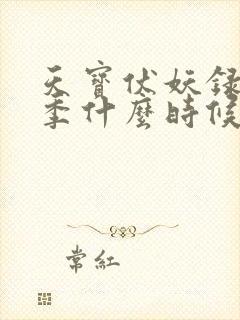 天寶伏妖録
季什麼時候
常紅